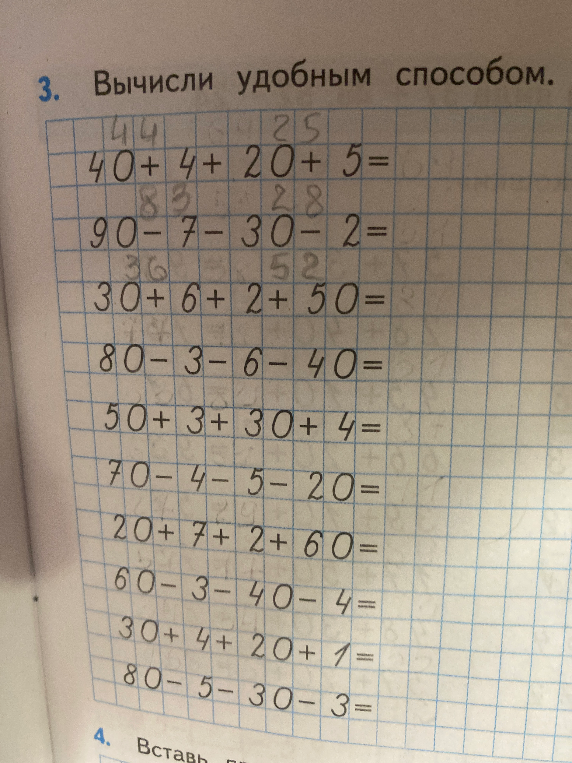 3. Вычисли удобным способом.
44 25
40+ 4+ 20+ 5=
83 28
90- 7- 30- 2=
36 52
30+ 6+ 2+ 50=
80- 3- 6- 40=
50+ 3+ 30+ 4=
70- 4- 5- 20=
20+ 7+ 2+ 60=
60- 3- 40- 4=
30+ 4+ 20+ 1=
80- 5- 30- 3=
4. Вставь